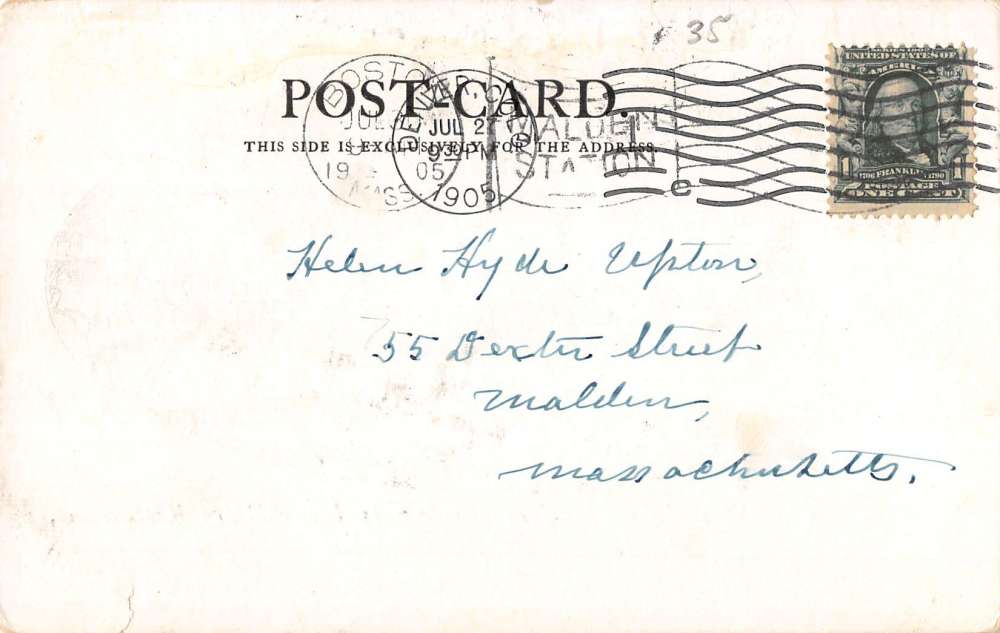 35
POST-CARD.
THIS SIDE IS EXCLUSIVELY FOR THE ADDRESS.
BOSTON
JUL
19 05
MASS.
DENVER, COLO.
JUL 27
9 30 PM
1905
MALDEN
STATION
1
UNITED STATES OF
AMERICA
1706 FRANKLIN 1790
POSTAGE
ONE CENT
Helen Hyde Upton,
55 Dexter Street
Malden,
Massachusetts.